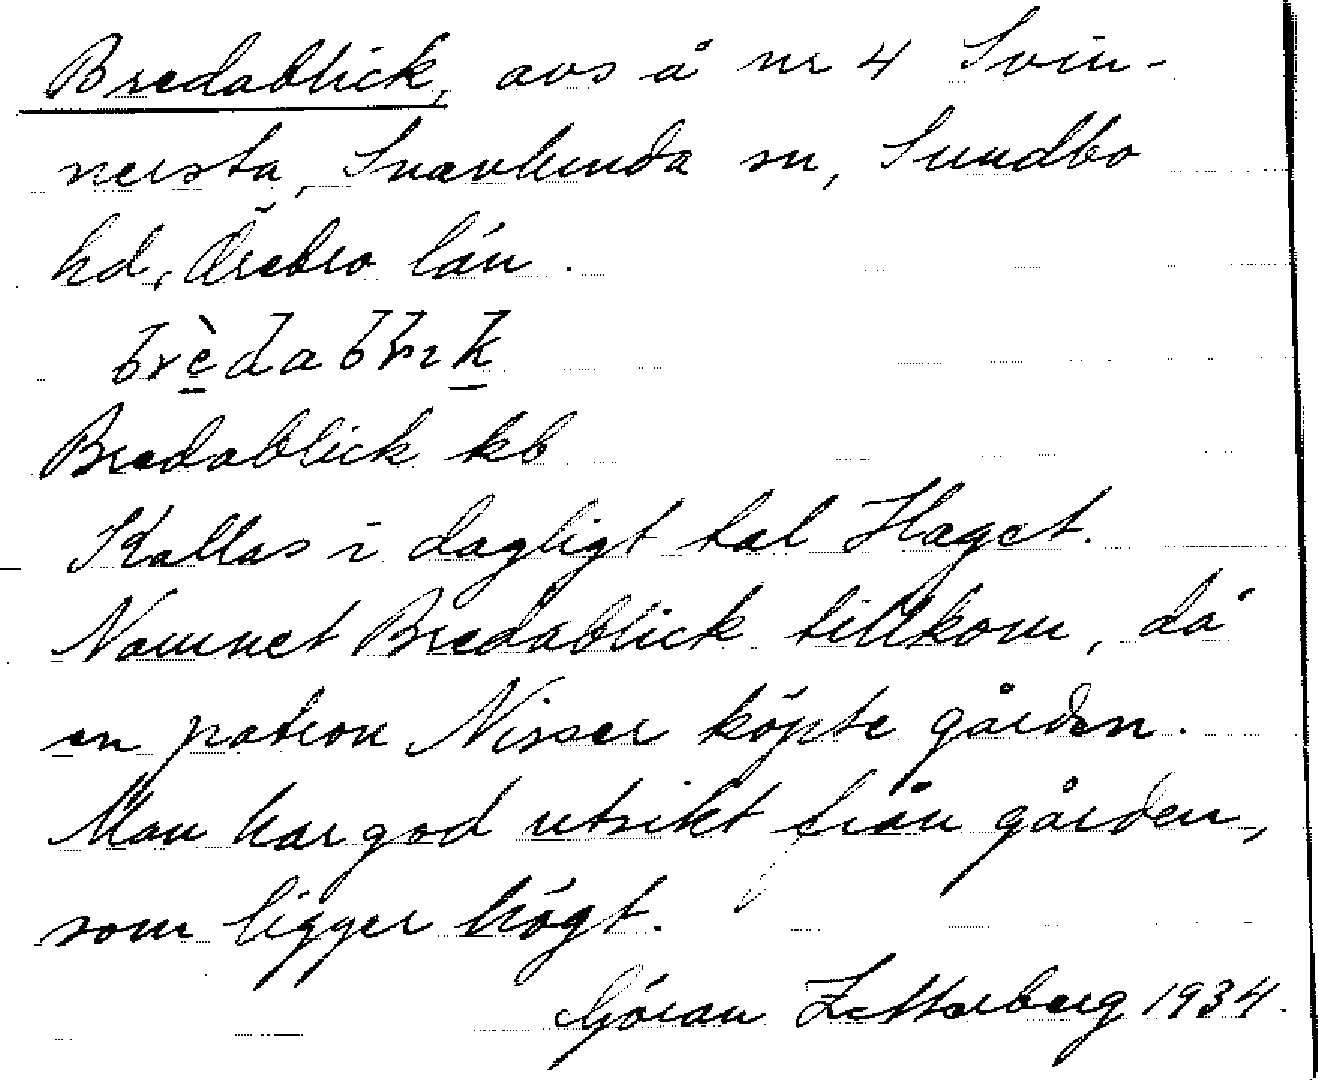 Bredablick, avs å nr 4 Svin-
nersta, Snavlunda sn, Sundbo
hd, Örebro län.
Bredablick kb
Kallas i dagligt tal Haget.
Namnet Bredablick tillkom, då
en patron Nisser köpte gården.
Man har god utsikt från gården,
som ligger högt.
Göran Zetterberg 1934.